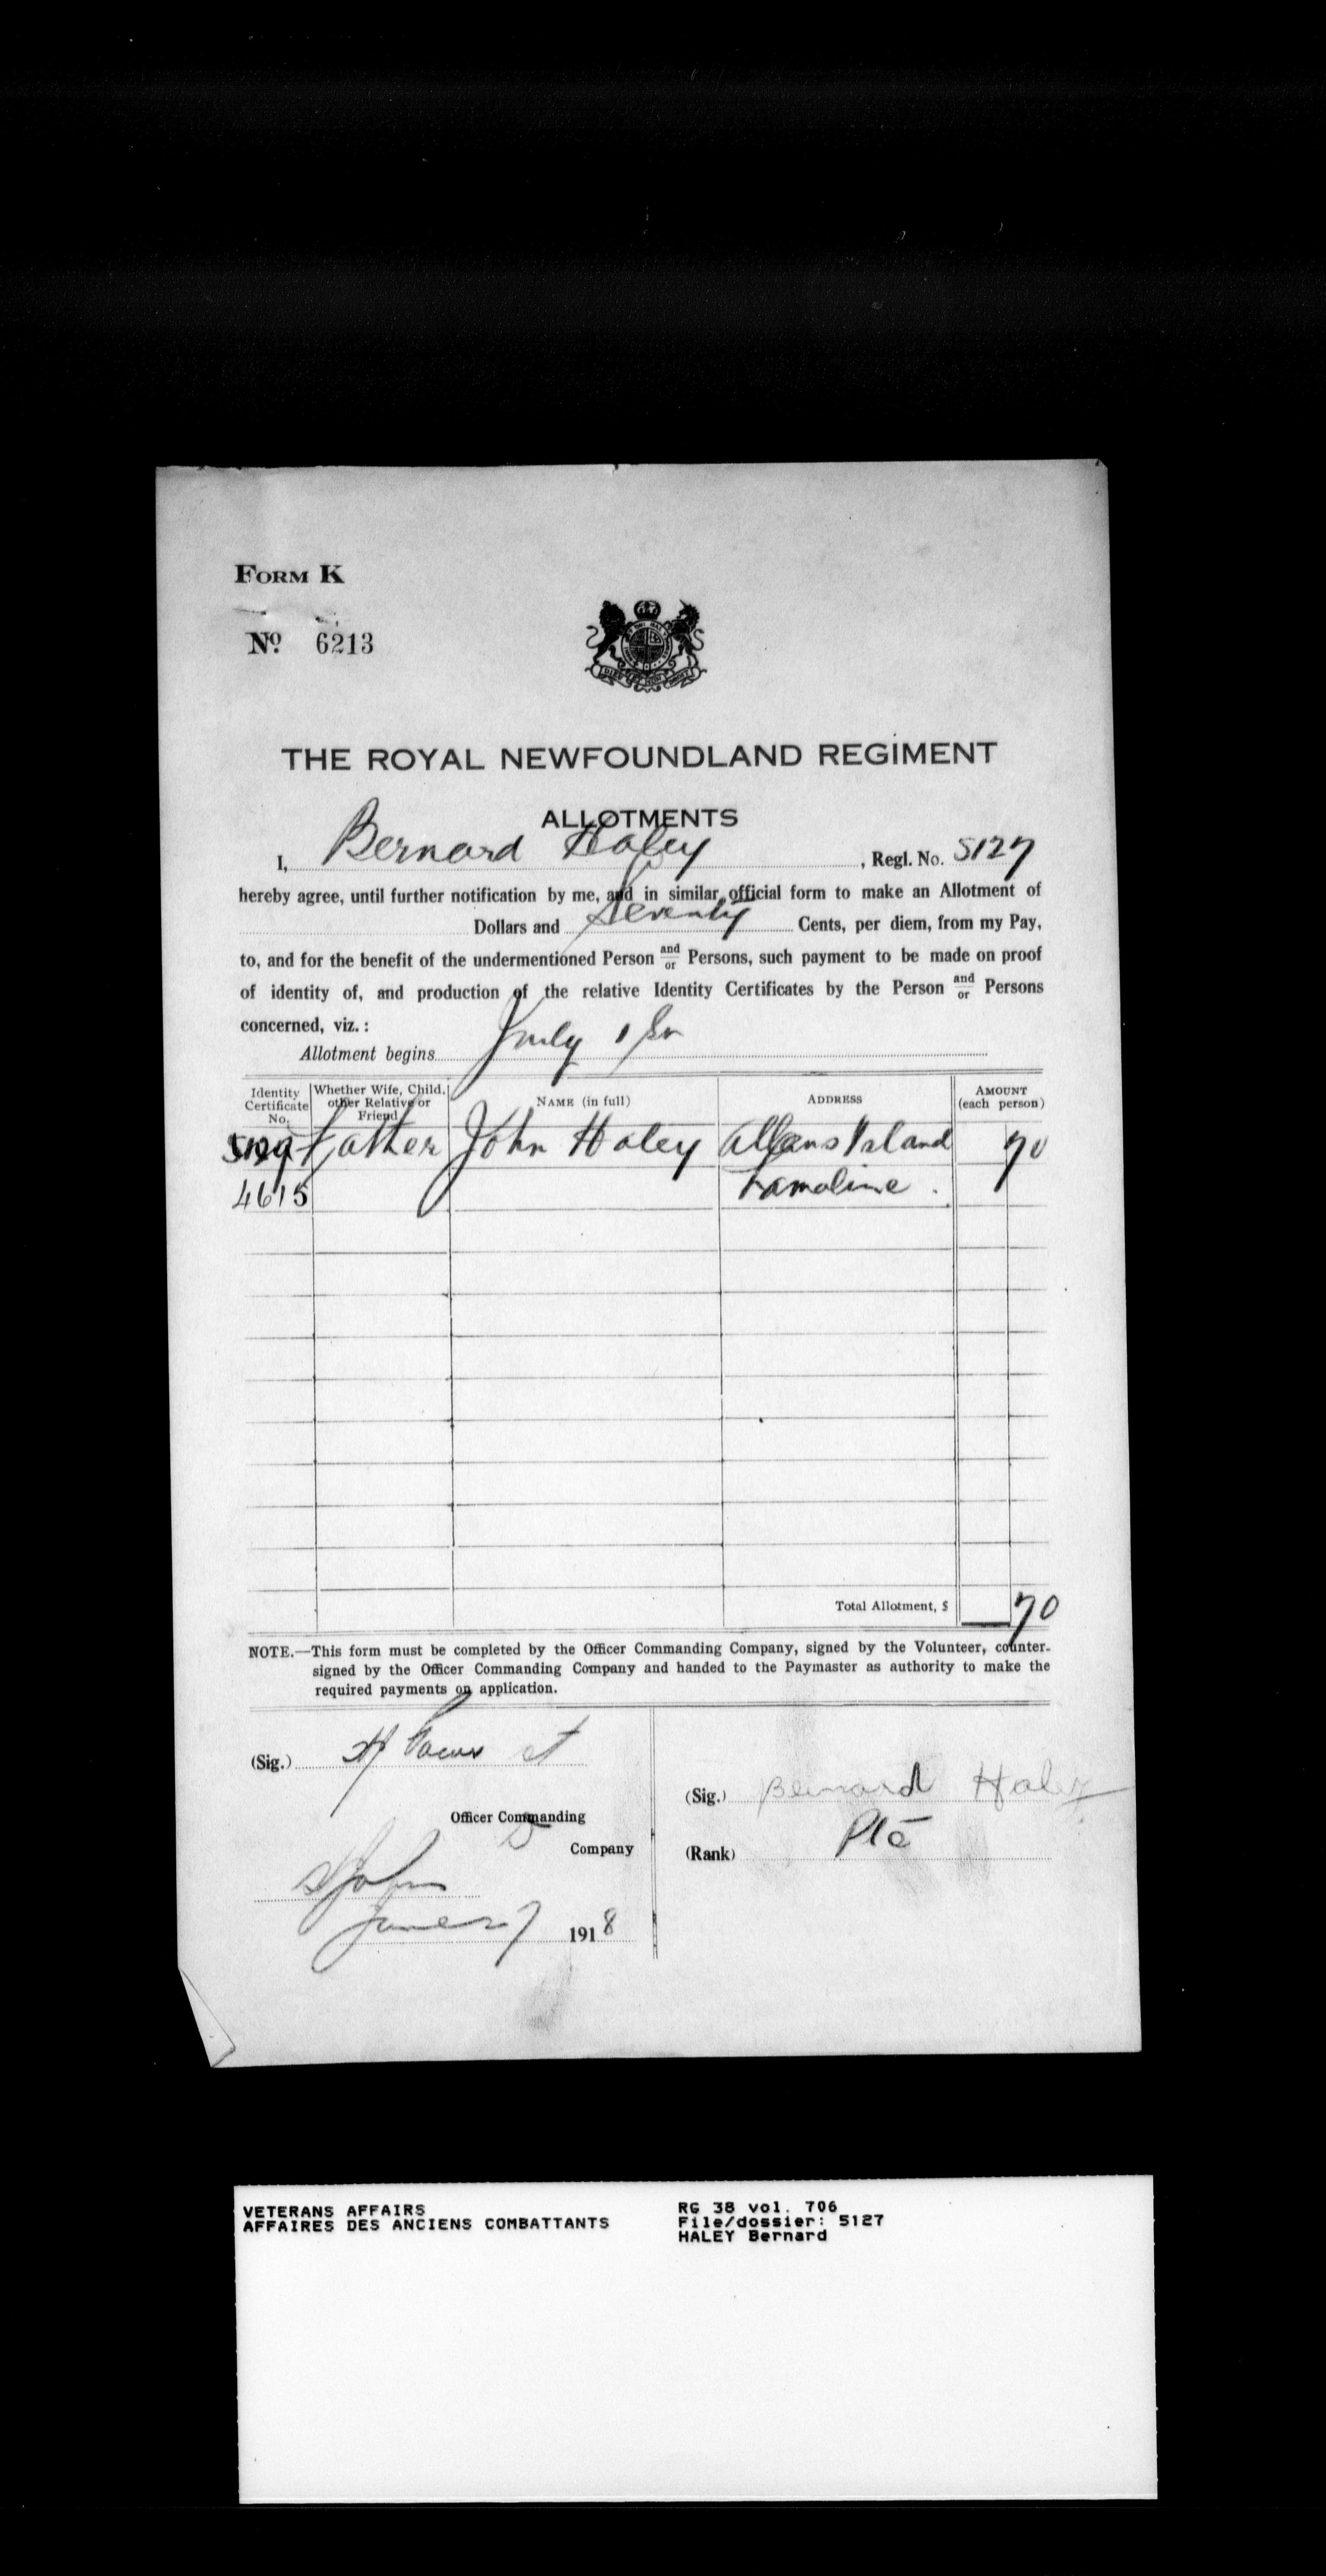 FORM K
No. 6213
THE ROYAL NEWFOUNDLAND REGIMENT
ALLOTMENTS
I, Bernard Haley, Regl. No. 5127
hereby agree, until further notification by me, and in similar official form to make an Allotment of
Dollars and Seventy Cents, per diem, from my Pay,
to, and for the benefit of the undermentioned Person and/or Persons, such payment to be made on proof
of identity of, and production of the relative Identity Certificates by the Person and/or Persons
concerned, viz.:
Allotment begins July 1st
Identity Certificate No. Whether Wife, Child, other Relative or Friend NAME (in full) ADDRESS AMOUNT (each person)
Father John Haley Allans Island 70
4615 Lamaline.
Total Allotment, $ 70
NOTE.—This form must be completed by the Officer Commanding Company, signed by the Volunteer, counter-
signed by the Officer Commanding Company and handed to the Paymaster as authority to make the
required payments on application.
(Sig.)
Officer Commanding
Company
St Johns
June 27 1918
(Sig.) Bernard Haley
(Rank) Pte
VETERANS AFFAIRS
AFFAIRES DES ANCIENS COMBATTANTS
RG 38 vol. 706
File/dossier: 5127
HALEY Bernard